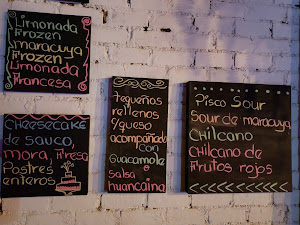 Limonada
Frozen
maracuya
Frozen
Limonada
Francesa
Cheesecake
de sauco,
mora, Fresa
Postres
enteros
Tequeños
rellenos
y queso
acompañado
con
Guacamole
e
salsa
huancaina
Pisco Sour
Sour de maracuya
Chilcano
Chilcano de
Frutos rojos